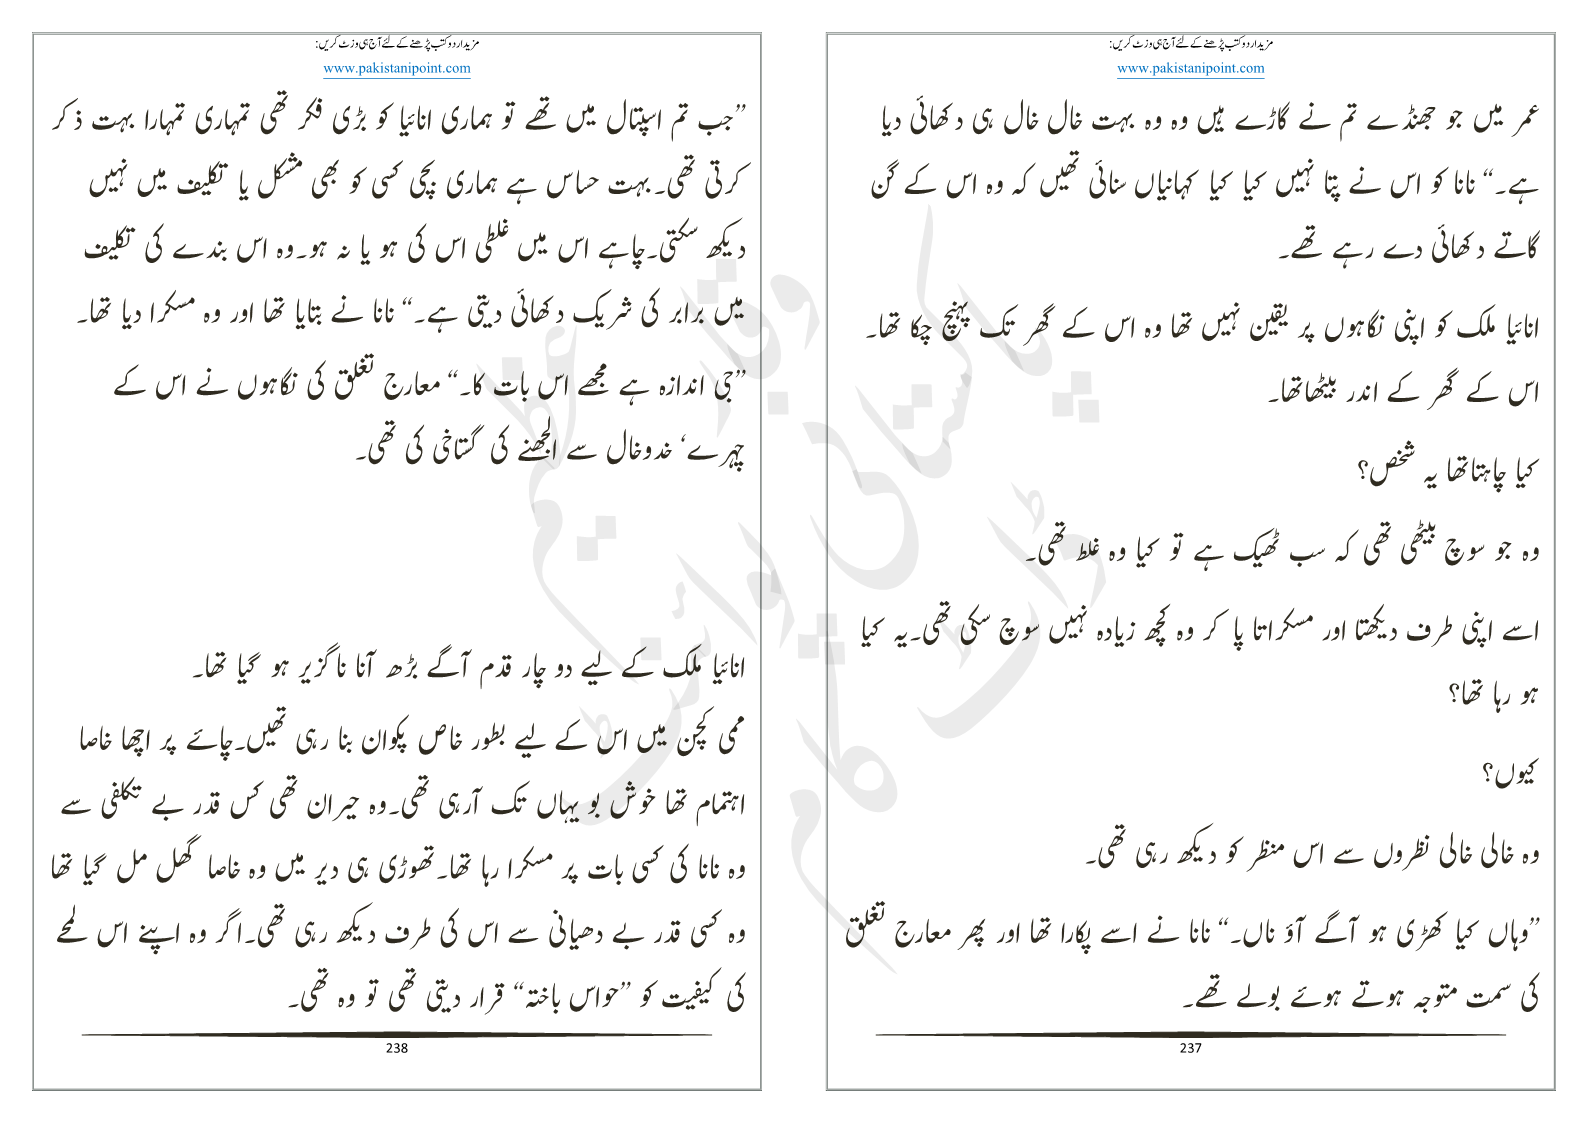 مزید اردو کتب پڑھنے کے لئے آج ہی وزٹ کریں:
www.pakistanipoint.com
عمر میں جو جھنڈے تم نے گاڑے ہیں وہ وہ بہت خال خال ہی دکھائی دیا
ہے۔“ نانا کو اس نے پتا نہیں کیا کیا کہانیاں سنائی تھیں کہ وہ اس کے گن
گاتے دکھائی دے رہے تھے۔
انائیا ملک کو اپنی نگاہوں پر یقین نہیں تھا وہ اس کے گھر تک پہنچ چکا تھا۔
اس کے گھر کے اندر بیٹھاتھا۔
کیا چاہتاتھا یہ شخص؟
وہ جو سوچ بیٹھی تھی کہ سب ٹھیک ہے تو کیا وہ غلط تھی۔
اسے اپنی طرف دیکھتا اور مسکراتا پا کر وہ کچھ زیادہ نہیں سوچ سکی تھی۔یہ کیا
ہو رہا تھا؟
کیوں؟
وہ خالی خالی نظروں سے اس منظر کو دیکھ رہی تھی۔
”وہاں کیا کھڑی ہو آگے آؤ ناں۔“ نانا نے اسے پکارا تھا اور پھر معارج تغلق
کی سمت متوجہ ہوتے ہوئے بولے تھے۔
237
مزید اردو کتب پڑھنے کے لئے آج ہی وزٹ کریں:
www.pakistanipoint.com
”جب تم اسپتال میں تھے تو ہماری انائیا کو بڑی فکر تھی تمہاری تمہارا بہت ذکر
کرتی تھی۔بہت حساس ہے ہماری بچی کسی کو بھی مشکل یا تکلیف میں نہیں
دیکھ سکتی۔چاہے اس میں غلطی اس کی ہو یا نہ ہو۔وہ اس بندے کی تکلیف
میں برابر کی شریک دکھائی دیتی ہے۔“ نانا نے بتایا تھا اور وہ مسکرا دیا تھا۔
”جی اندازہ ہے مجھے اس بات کا۔“ معارج تغلق کی نگاہوں نے اس کے
چہرے‘ خدوخال سے الجھنے کی گستاخی کی تھی۔
انائیا ملک کے لیے دو چار قدم آگے بڑھ آنا ناگزیر ہو گیا تھا۔
ممی کچن میں اس کے لیے بطور خاص پکوان بنا رہی تھیں۔چائے پر اچھا خاصا
اہتمام تھا خوش بو یہاں تک آرہی تھی۔وہ حیران تھی کس قدر بے تکلفی سے
وہ نانا کی کسی بات پر مسکرا رہا تھا۔تھوڑی ہی دیر میں وہ خاصا گھل مل گیا تھا
وہ کسی قدر بے دھیانی سے اس کی طرف دیکھ رہی تھی۔اگر وہ اپنے اس لمحے
کی کیفیت کو ”حواس باختہ“ قرار دیتی تھی تو وہ تھی۔
238
وقار عظیم
پاکستانی پوائنٹ
ڈاٹ کام